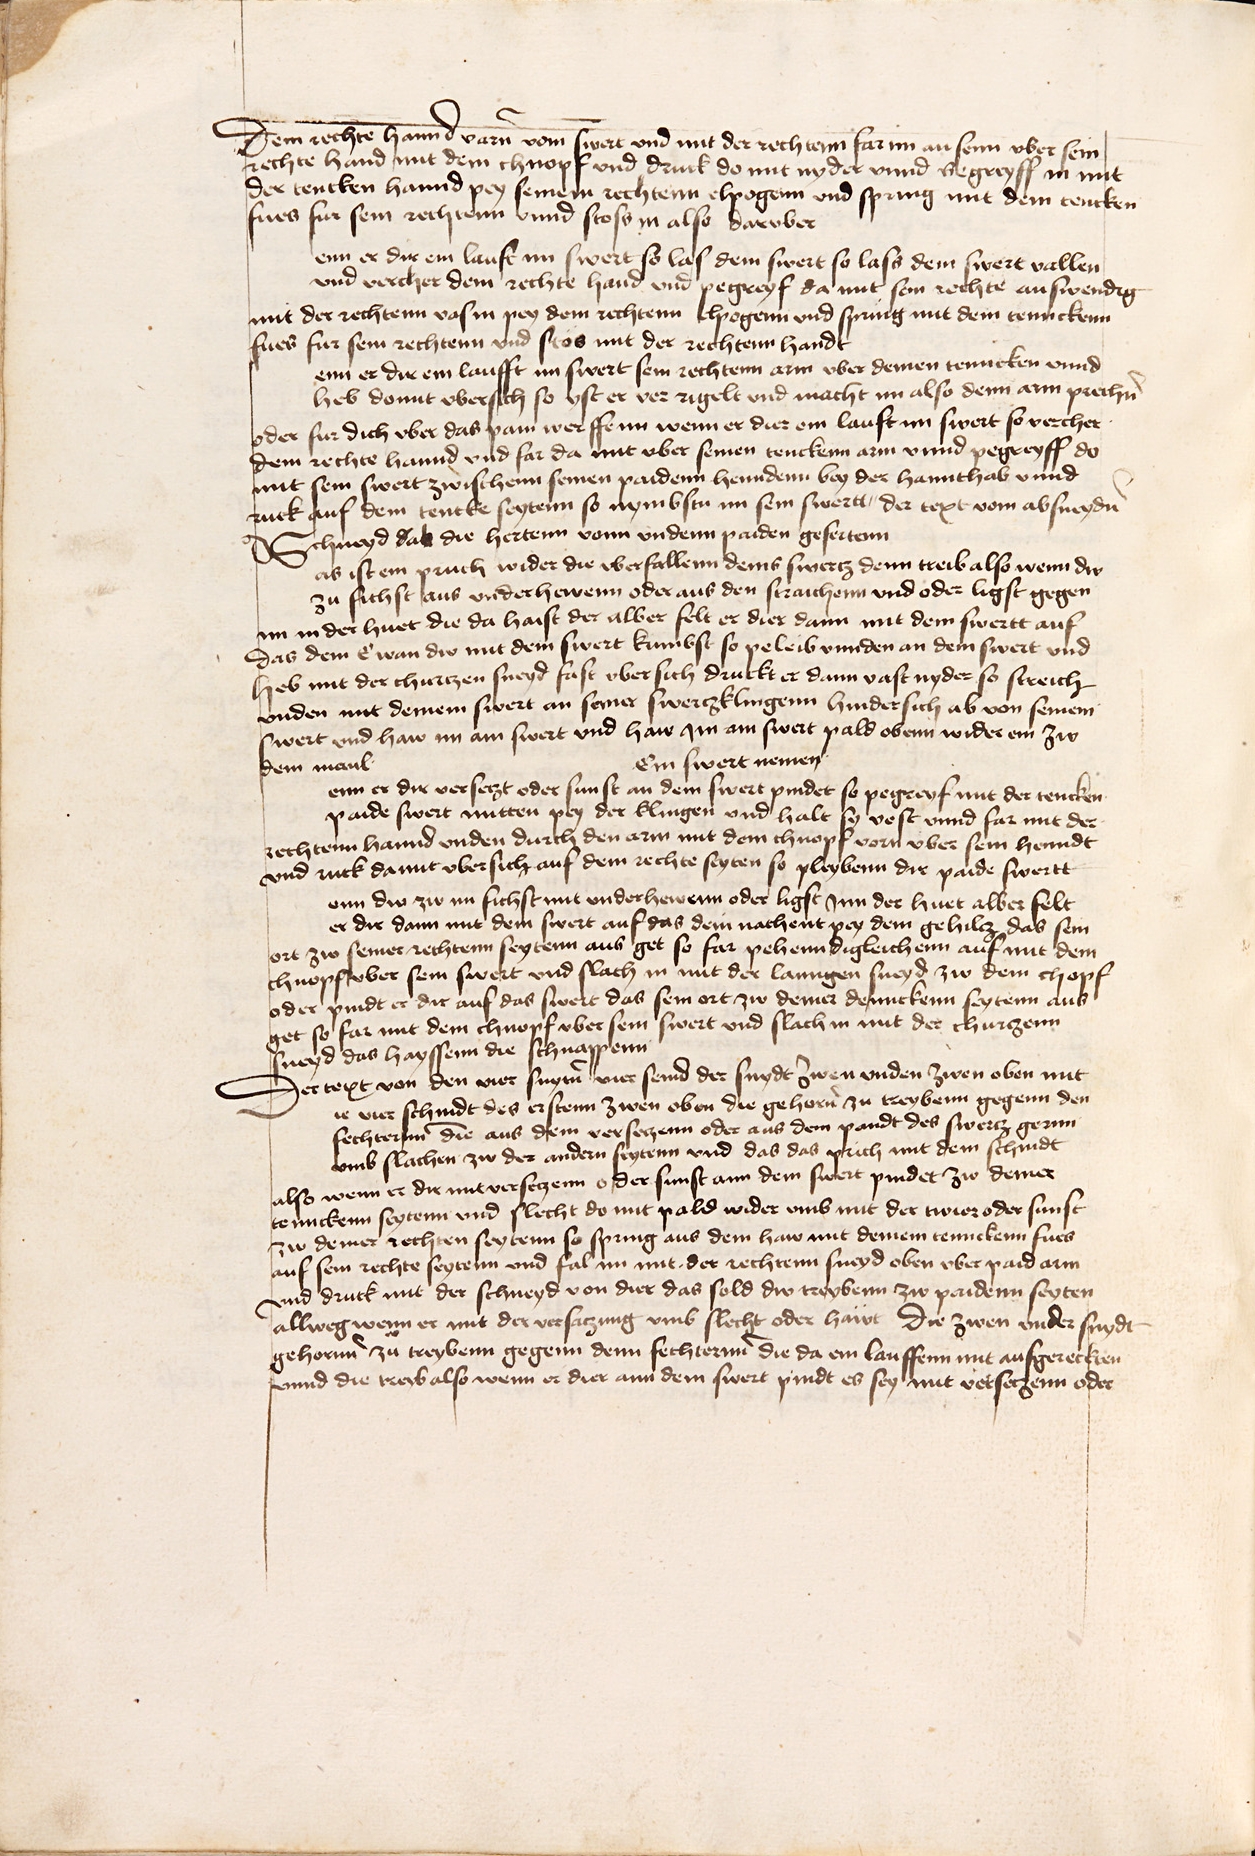 Dein rechte hannd varñ vom swert und mit der rechtenn far im an senn vber sein
rechte hand mit dem chnopf vnd druck do mit nyder vnnd Begreyff in mit
der tencken hannd pey seinem rechtenn elpogenn vnd spring mit dem tencken
fues fur sein rechtenn vnnd stoss in also daruber
enn er dir ein lauft im swert so las dein swert so lass dein swert vallen
vnd vercher dein rechte hand vnd pegreyf da mit sein rechte auswendig
mit der rechtenn vas in pey dem rechtenn elpogenn vnd spring mit dem tennckenn
fues fur sein rechtenn vnd stos mit der rechtenn handt
enn er dir ein laufft im swert sein rechtenn arm vber deinen tenncken vnnd
heb domit vbersich so yst er ver rigelt vnd macht im also denn arm prechñ
oder fur dich vber das pain werffenn wenn er dier ein lauft im swert so vercher
dein rechte hannd vnd far da mit vber seinen tenckenn arm vnnd pegreyff do
mit sein swert zwischenn seinen paidenn henndenn bey der hannthab vnnd
ruck auf dein tencke seytenn so nymbstu im sein swertt der text vom absneydñ
Schneyd dab die hertenn vonn vndenn paiden gefertenn
as ist ein pruch wider die vberfallenn deins swertz denn treib also wenn dw
zu fichst aus vnderhewenn oder aus den straichenn vnd oder ligst gegen
im in der huet die da haist der alber felt er dier dann mit dem swertt auf
das dein Ewan dw mit dem swert kumbst so peleib vnnden an dem swert vnd
heb mit der churtzen sneyd fast vbersich druckt er dann vast nyder so streich
vnden mit deinem swert an seiner swertzklingenn hindersich ab von seinem
swert vnd haw im am swert vnd haw Im am swert pald obenn wider ein zw
dem maul Ein swert nemen
enn er dir versetzt oder sunst an dein swert pindet so pegreyf mit der tencken
paide swert mitten pey der klingen vnd halt sy vest vnnd far mit der
rechtenn hannd vnden durch den arm mit dem chnopf vorn vber sein henndt
vnd ruck damit vbersich auf dein rechte seyten so pleybenn dir paide swertt
enn dw zw im fichst mit vnderhewenn oder ligst Inn der huet alber felt
er dir dann mit dem swert auf das dein nachent pey dem gehiltz das sein
ort zw seiner rechtenn seytenn aus get so far pehenndigleichenn auf mit dem
chnopf vber sein swert vnd slach in mit der lanngen sneyd zw dem chopf
oder pindt er dir auf das swert das sein ort zw deiner denncken seytenn aus
get so far mit dem chnopf vber sein swert vnd slach in mit der churtzenn
sneyd das hayssenn die schnappenn
Der text von den vier snytñ vier seind der snydt zwen vnden zwen oben mit
ie vier schnidt des erstenn zwen oben die gehorñ zu treybenn gegenn den
fechternn die aus dem versetzenn oder aus dem pandt des swertz gernn
vmb slachen zw der andern seytenn vnd das das prich mit dem schnidt
also wenn er dir mit versetzenn oder sunst ann dein swert pindet zw deiner
tennckenn seytenn vnd slecht do mit pald wider vmb mit der twier oder sunst
zw deiner rechten seytenn so spring aus dem haw mit deinem tennckenn fues
auf sein rechte seytenn vnd fal im mit der rechtenn sneyd oben vber paid arm
vnd druck mit der schneyd von dier das sold dw treybenn zw paidenn seyten
allweg wenn er mit der versatzung vmb slecht oder hawt Die zwen vnder snydt
gehornn zu treybenn gegenn denn fechternn die da ein lauffenn mit aufgereckten
vnnd die treyb also wenn er dier ann dem swert pindt es sey mit versetzenn oder